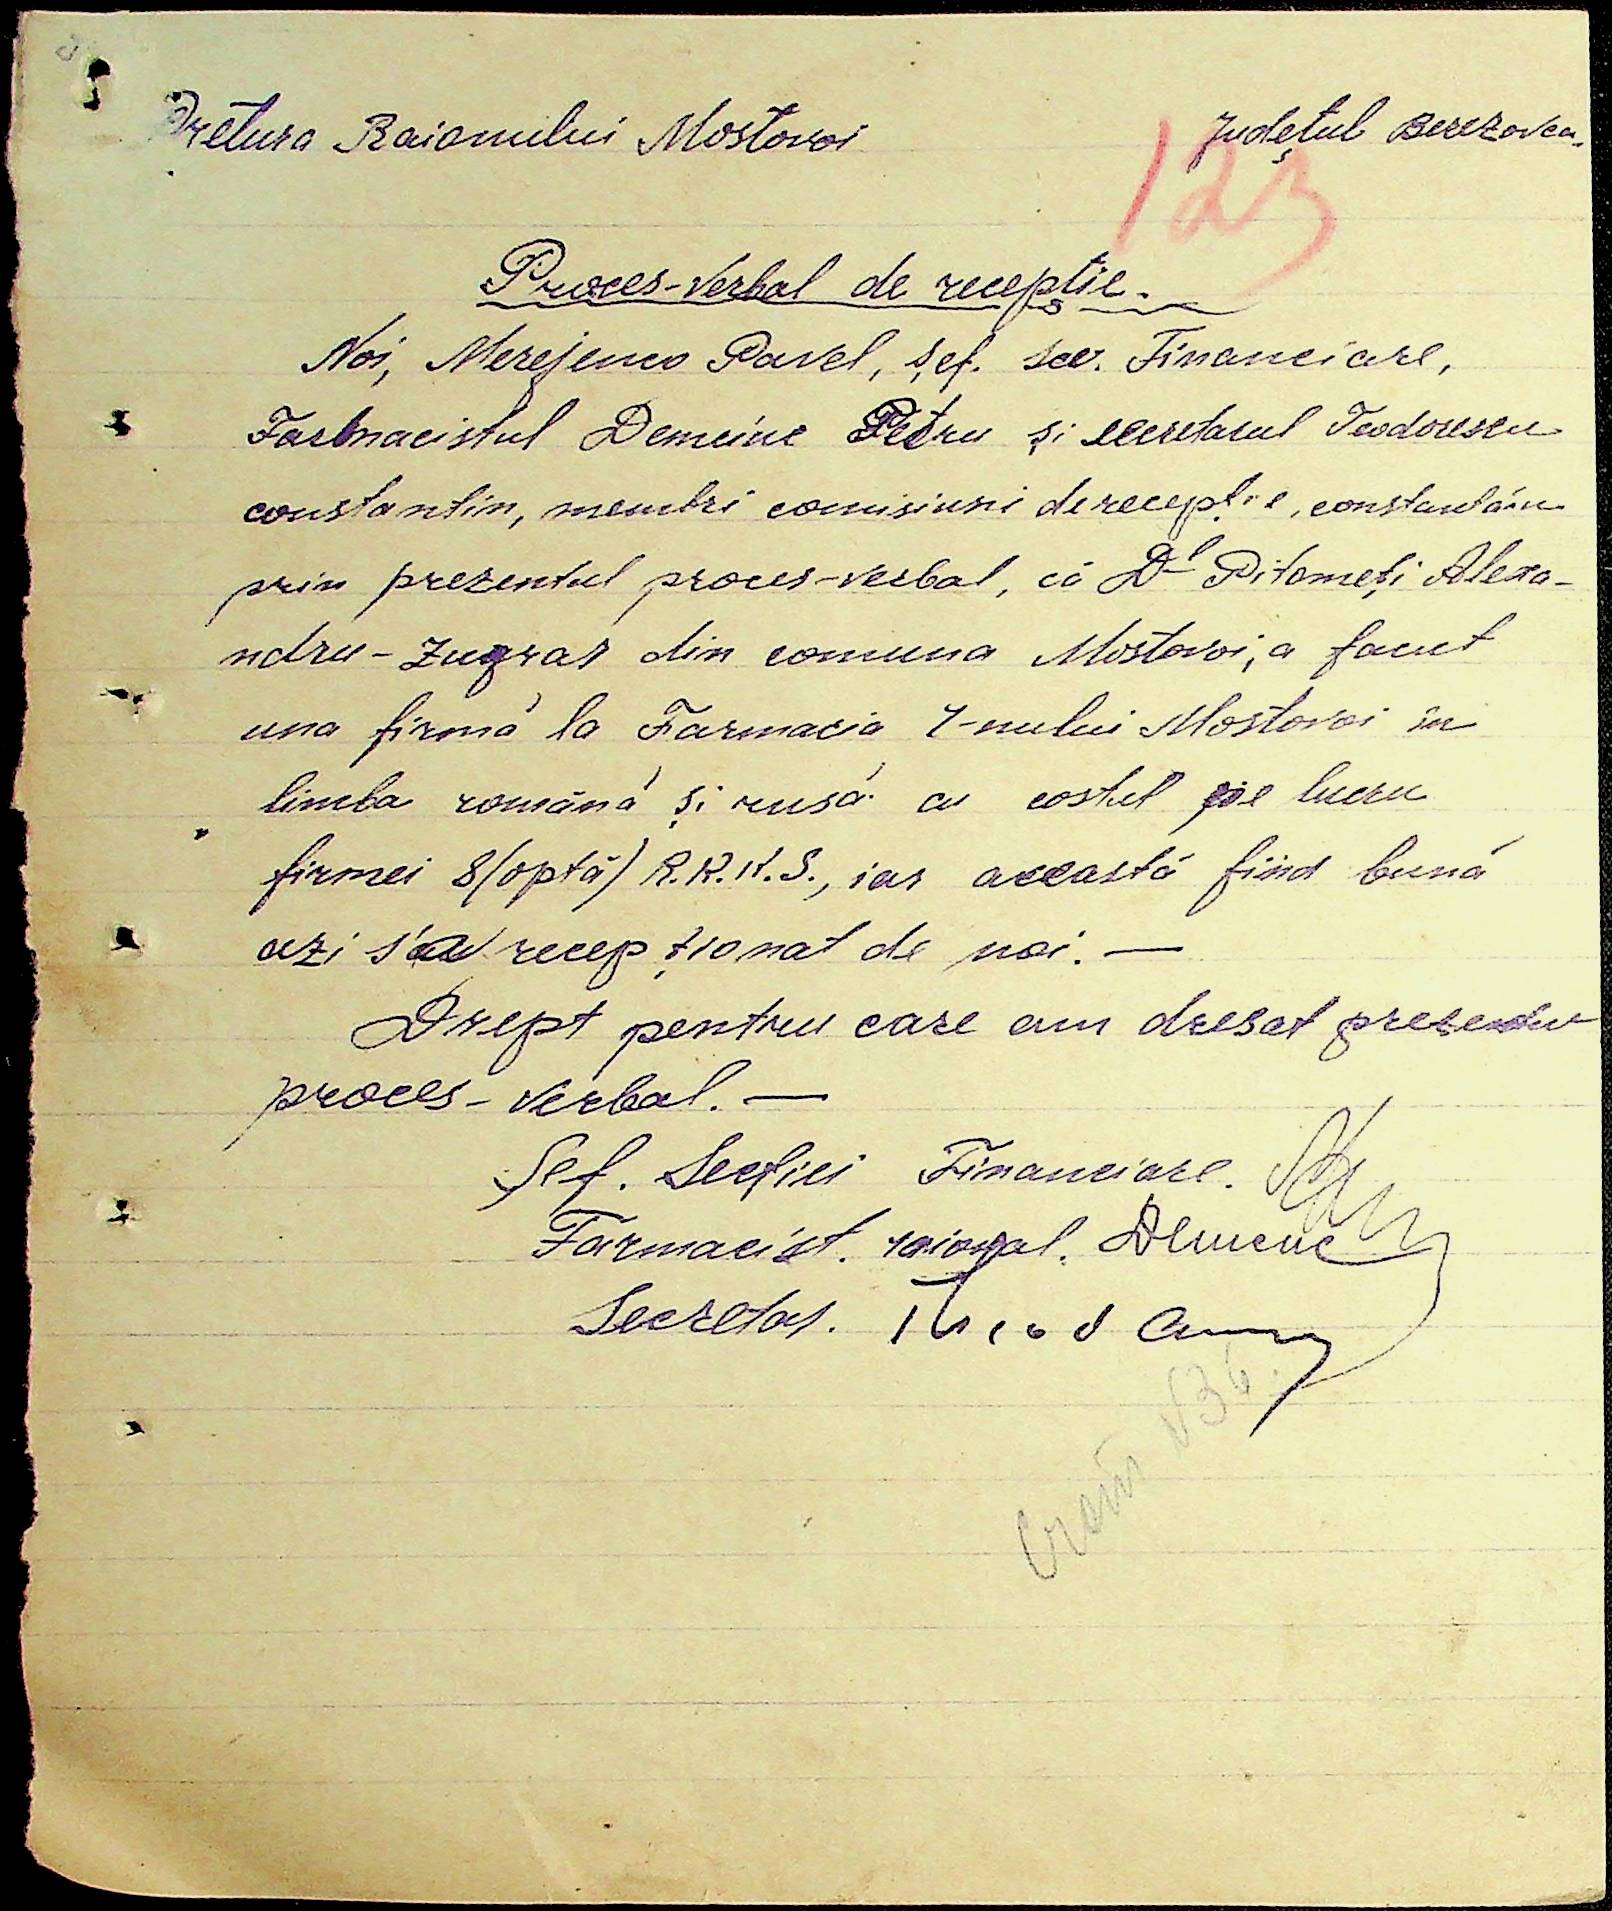 Pretura Raionului Mostovoi Judeţul Berezovca.
123
Proces-Verbal de recepţie.
Noi, Merejenco Pavel, şef. sec. Financiare,
Farmacistul Demcinc Petru şi secretarul Teodorescu
constantin, membri comisiuni de recepţie, constantăm
prin prezentul proces-verbal, că Dl Pitomeţi Alexa-
ndru - Zugrav din comuna Mostovoi, a facut
una firmă la Farmacia r-nului Mostovoi în
limba română şi rusă cu costul pe lucru
firmei 8 (optă) R.K.K.S., iar aceastá fiind bună
azi s'a recepţionat de noi. —
Drept pentru care am dresat prezentul
proces-verbal. —
Şef. Secţiei Financiare.
Farmacist. raional. Demcinc
Secretar.
N36.